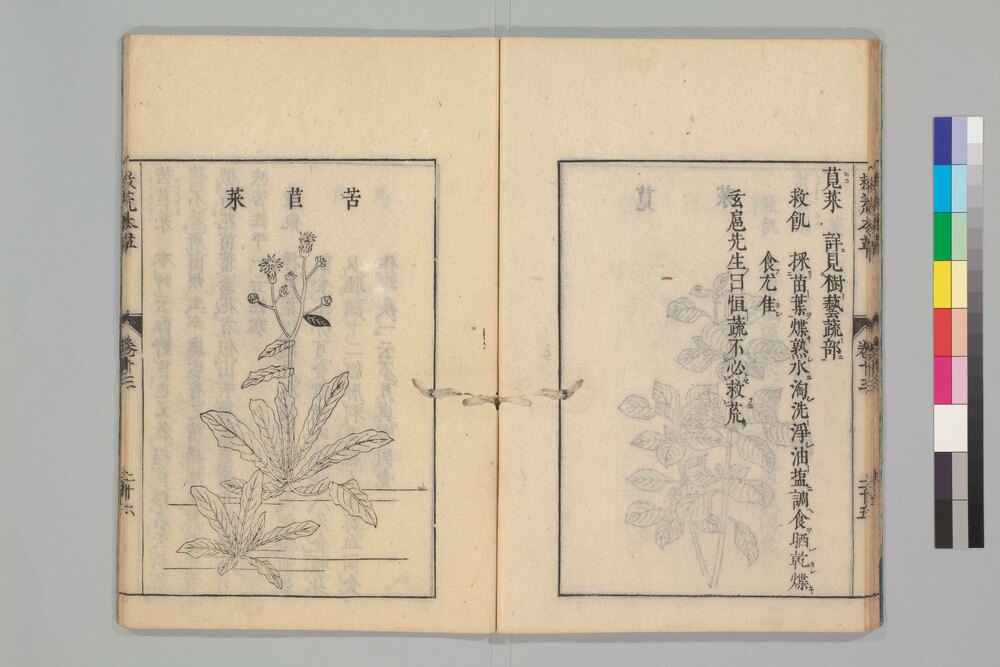 莧菜 詳見樹藝蔬部
救飢 採苗葉煠熟水淘洗淨油塩調食晒乾煠
食尤佳
玄扈先生曰恒蔬不必救荒
苦苣菜
救荒本草
卷十三
二十六